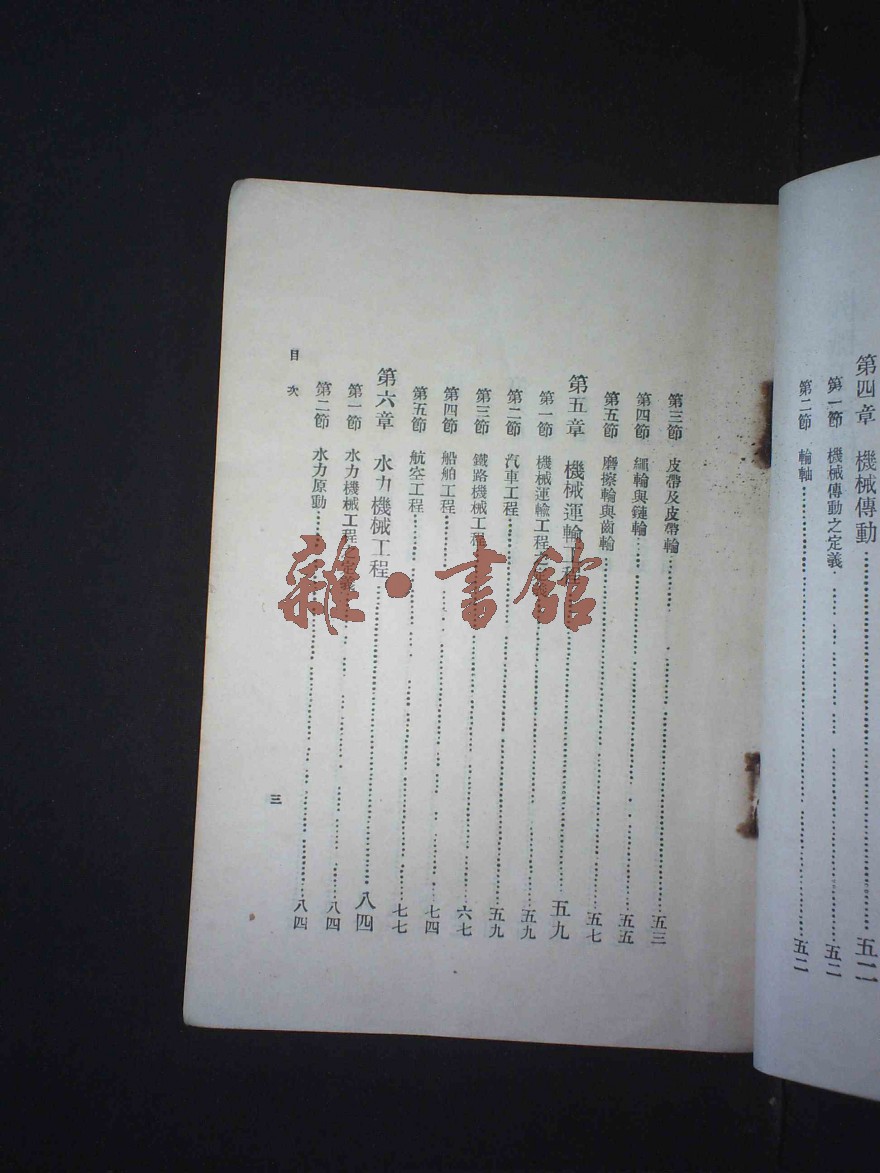 第四章 機械傳動 五二
第一節 機械傳動之定義 五二
第二節 輪軸 五二
第三節 皮帶及皮帶輪 五三
第四節 繩輪與鏈輪 五五
第五節 磨擦輪與齒輪 五七
第五章 機械運輸工程 五九
第一節 機械運輸工程之 五九
第二節 汽車工程 五九
第三節 鐵路機械工程 六七
第四節 船舶工程 七四
第五節 航空工程 七七
第六章 水力機械工程 八四
第一節 水力機械工程之定義 八四
第二節 水力原動 八四
目次
三
雜·書館